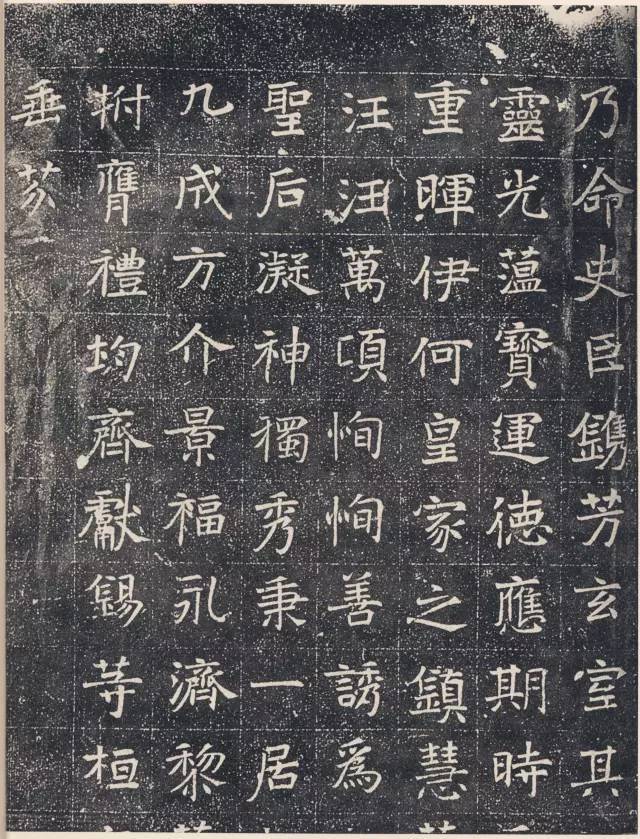 乃命史臣鐫芳玄室其
靈光蘊寶運德應期時
重暉伊何皇家之鎮慧
汪汪萬頃恂恂善誘爲
聖后凝神獨秀秉一居
九成方介景福永濟黎
祔膺禮均齊獻錫等桓
垂芬